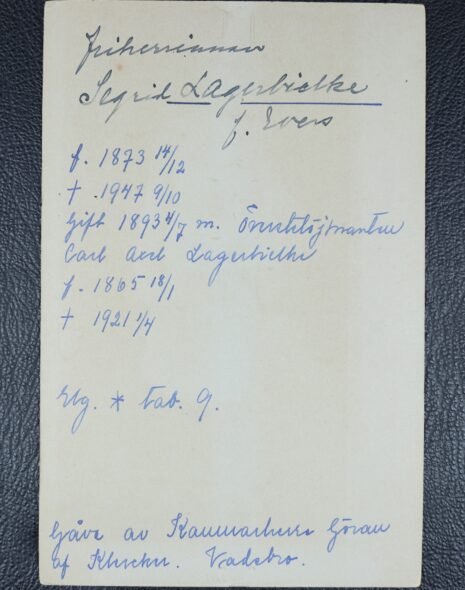 friherrinnan
Segrid Lagerbielke
f. Evers
f. 1873 14/12
† 1947 9/10
Gift 1893 4/7 m. Överstlöjtnanten
Carl Axel Lagerbielke
f. 1865 18/1
† 1921 1/4
Elg. * tab. 9.
Gåva av Kammarherre Göran
af Klercker. Vadsbro.